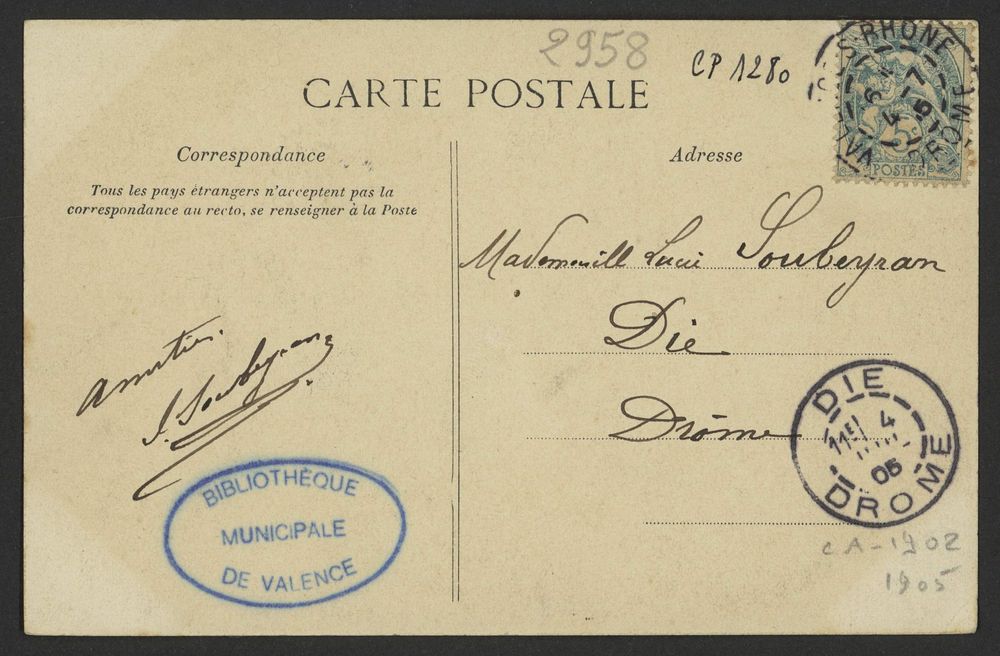 2958
CP 1280
CARTE POSTALE
VALENCE-S-RHONE
DROME
5
POSTES
Correspondance
Adresse
Tous les pays étrangers n'acceptent pas la
correspondance au recto, se renseigner à la Poste
Mademoiselle Lucie Soubeyran
Die
Drôme
Amitiés
J. Soubeyran
DIE
11E 4
05
DROME
BIBLIOTHÈQUE
MUNICIPALE
DE VALENCE
CA-1902
1905